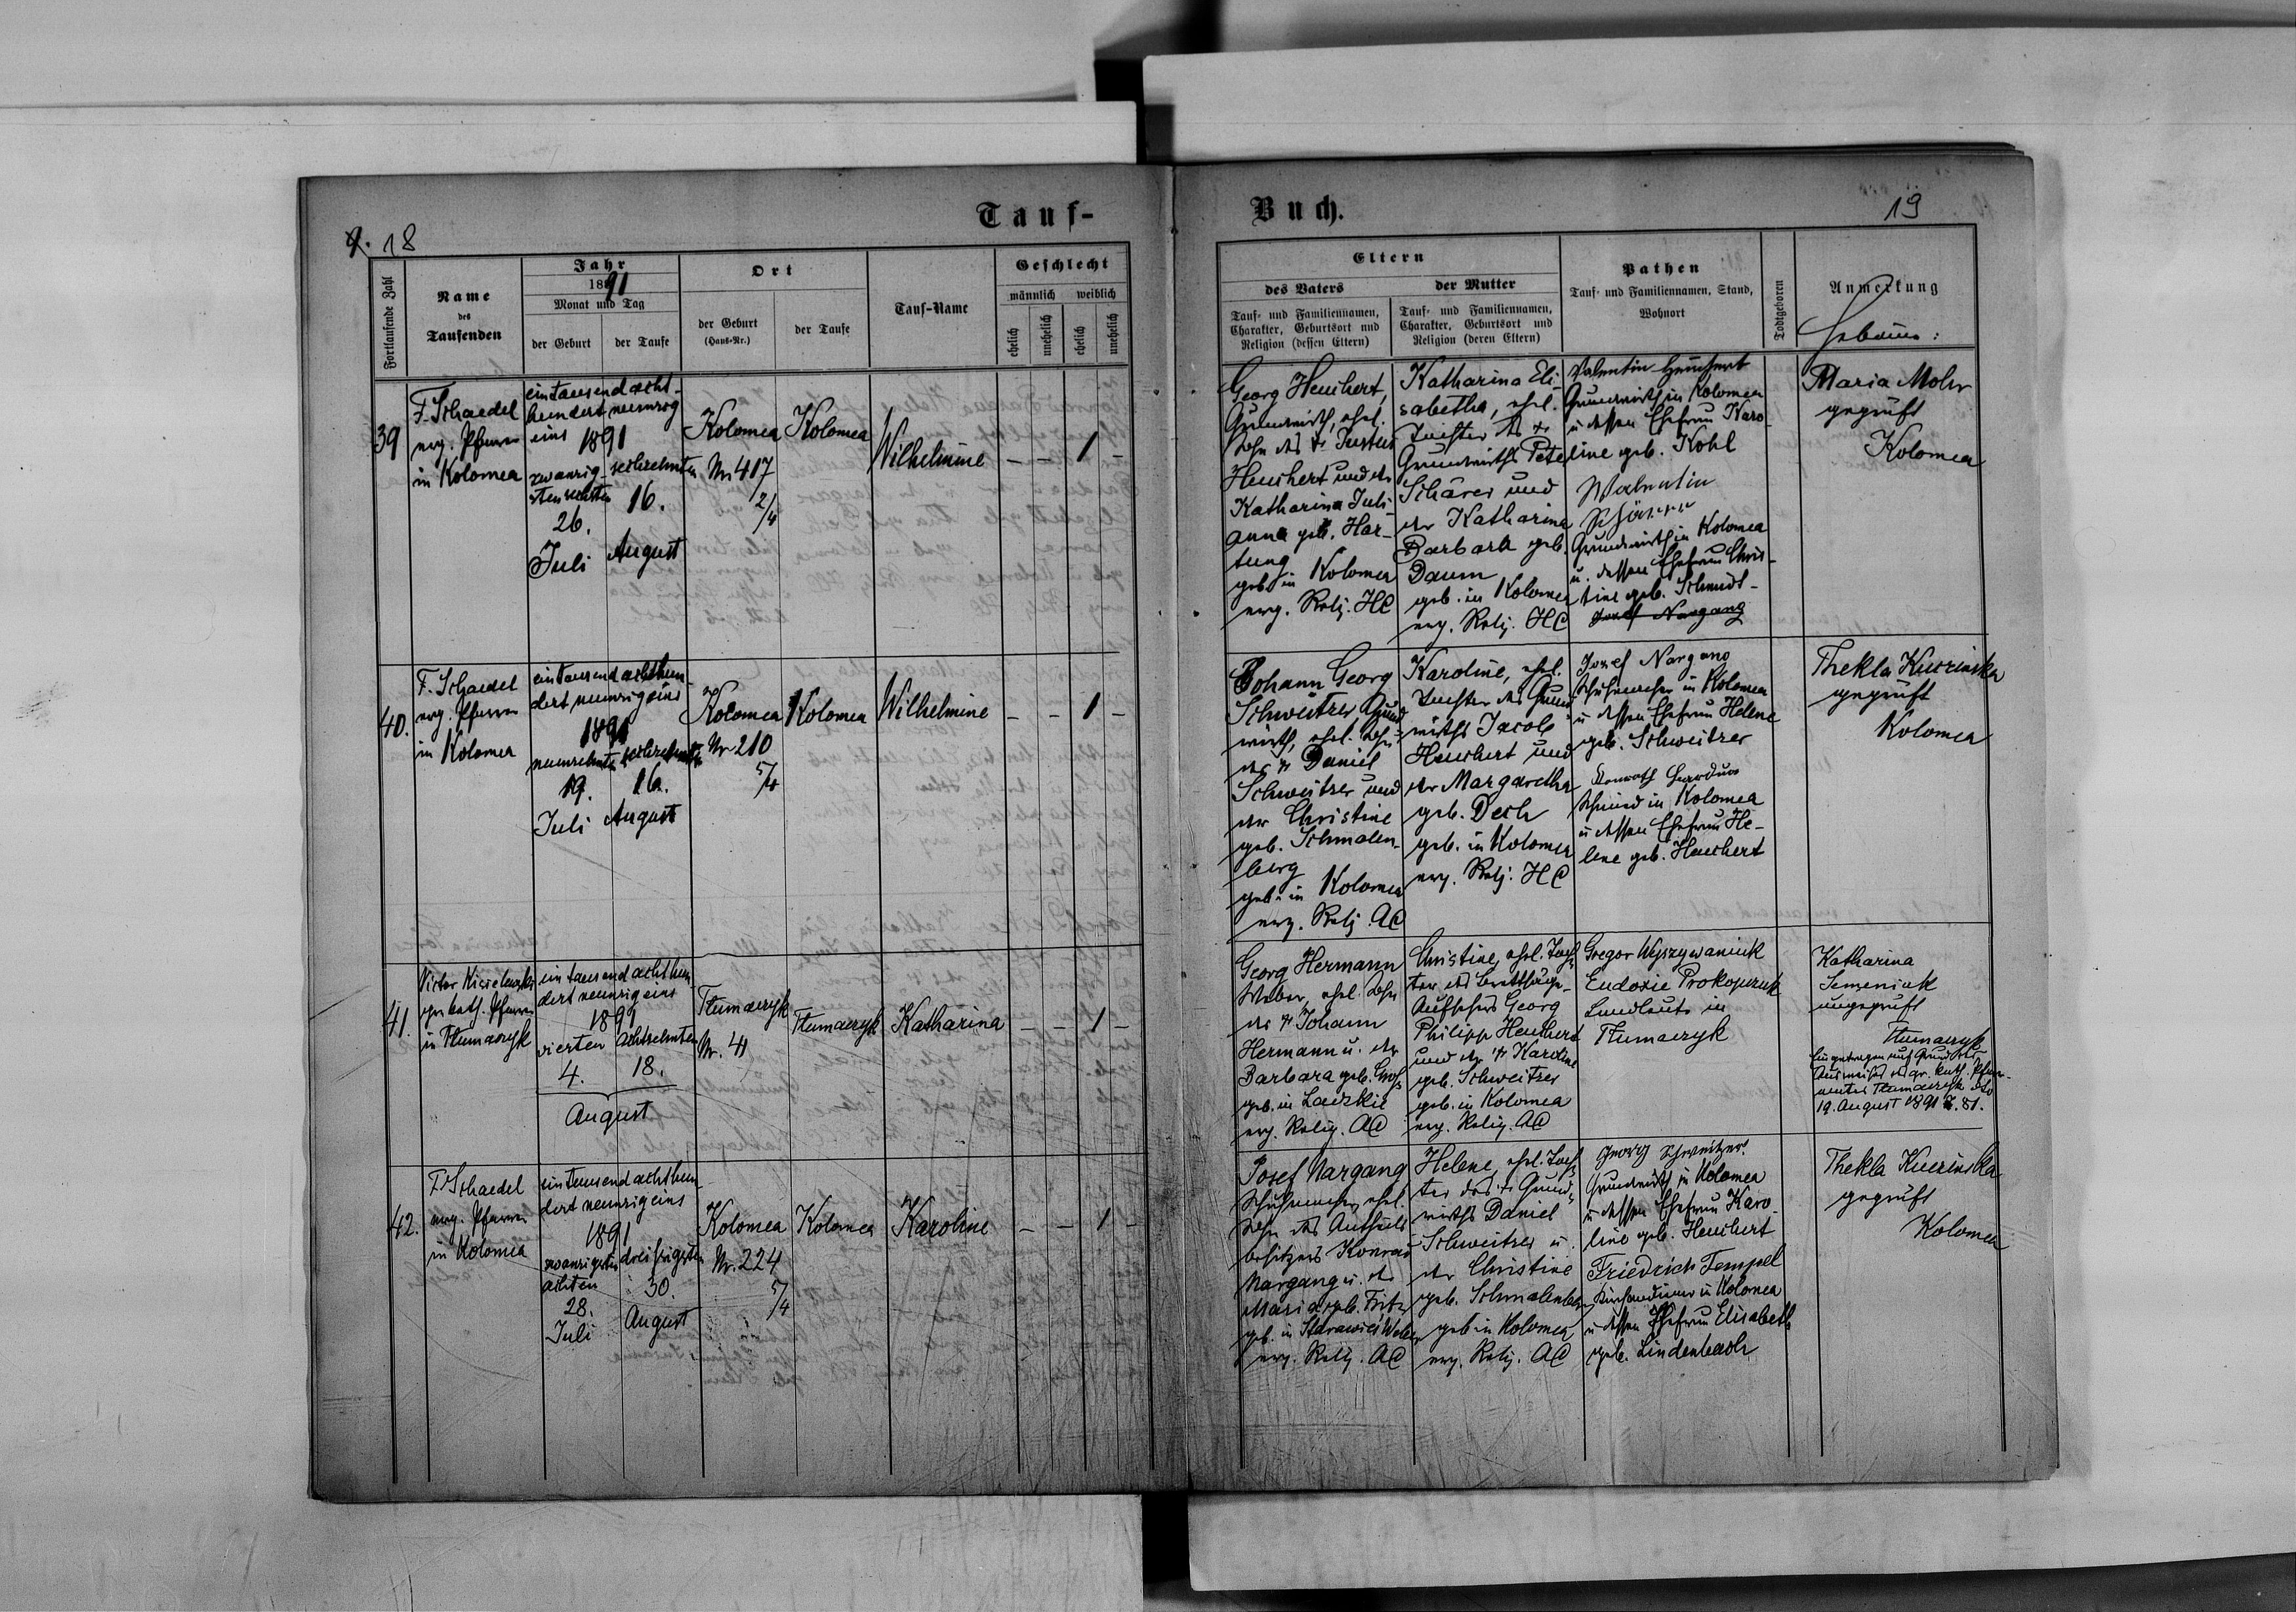 Tauf-
9. 18
Fortlaufende Zahl
Name
des
Taufenden
Jahr
1891
Monat und Tag
der Geburt
der Taufe
Ort
der Geburt
(Haus-Nr.)
der Taufe
Tauf-Name
Geschlecht
männlich
weiblich
ehelich
unehelich
ehelich
unehelich
39
F. Schaedel
evg. Pfarrer
in Kolomea
eintausendacht-
hundert neunzig
eins 1891
zwanzig-
sten sechsten
26.
Juli
sechzehnten
16.
August
Kolomea
Nr 417
2/4
Kolomea
Wilhelmine
– – 1 –
40.
F. Schaedel
evg. Pfarrer
in Kolomea
eintausendachthun-
dert neunzigeins
1891
neunzehnten
19.
Juli
sechzehnten
16.
August
Kolomea
Nr 210
5/4
Kolomea
Wilhelmine
– – 1 –
41.
Victor
gr. kath. Pfarrer
in Tłumaczyk
eintausendachthun
dert neunzigeins
1891
vierten
4.
achtzehnten
18.
August
Tłumaczyk
Nr. 41
Tłumaczyk
Katharina
– – 1 –
42.
F. Schaedel
evg. Pfarrer
in Kolomea
eintausendachthun-
dert neunzigeins
1891
zwanzigsten
achten
28.
Juli
dreissigsten
30.
August
Kolomea
Nr. 224
5/4
Kolomea
Karoline
– – 1 –
Buch.
19
Eltern
des Vaters
Tauf- und Familiennamen,
Charakter, Geburtsort und
Religion (dessen Eltern)
der Mutter
Tauf- und Familiennamen,
Charakter, Geburtsort und
Religion (deren Eltern)
Pathen
Tauf- und Familiennamen, Stand,
Wohnort
Todtgeboren
Anmerkung
Hebamme:
Georg Heuchert,
Grundwirth, ehel.
Sohn des † Justus
Heuchert und der
Katharina Juli-
anna geb. Har-
tung
geb. in Kolomea
evg. Relig. HC
Katharina Eli-
sabetha, ehel.
Tochter des †
Grundwirths Peter
Schärer und
der Katharina
Barbara geb.
Daum
geb. in Kolomea
evg. Relig. HC
Valentin Heuchert
Grundwirth in Kolomea
u dessen Ehefrau Karo-
line geb. Kohl
Walentin
Schärer
Grundwirth in Kolomea
u. dessen Ehefrau Chris-
tine geb. Schmidt-
Josef Nargang
Maria Mohr
geprüft
Kolomea
Johann Georg
Schweitzer, Grund
wirth, ehel. Sohn
des † Daniel
Schweitzer und
der Christine
geb. Schmalen-
berg
geb. in Kolomea
evg. Relig. AC
Karoline, ehel.
Tochter des Grund
wirths Jacob
Heuchert und
der Margaretha
geb. Dech
geb. in Kolomea
evg. Relig. HC
Jozef Nargang
Schuhmacher in Kolomea
u dessen Ehefrau Helene
geb. Schweitzer
Schmied in Kolomea
u dessen Ehefrau He-
lene geb. Heuchert
Thekla Kuczinska
geprüft
Kolomea
Georg Hermann
Weber, ehel. Sohn
des † Johann
Hermann u. der
Barbara geb. Groß
geb. in Ladzkie
evg. Relig. AC
Christine, ehel. Toch-
ter des Brettsäge-
Aufsehers Georg
Philipp Heuchert
und der † Karoline
geb. Schweitzer
geb. in Kolomea
evg. Relig. AC
Gregor Wyszywaniuk
Eudoxie Prokopczuk
Landleute in
Tłumaczyk
Katharina
Semeniuk
ungeprüft
Tłumaczyk
Eingetragen auf Grund des
Ausweises des gr. kath. Pfarr-
amtes Tłumaczyk dto
19. August 1891 Z. 81.
Josef Nargang
Schuhmacher, ehel.
Sohn des Antheils
besitzers Konrad
Nargang u. der
Maria geb. Fritz
geb. in
evg. Relig. AC
Helene, ehel. Toch-
ter des † Grund-
wirths Daniel
Schweitzer u.
der Christine
geb. Schmalenberg
geb in Kolomea
evg. Relig. AC
Georg Schweitzer
Grundwirth in Kolomea
u dessen Ehefrau Karo-
line geb. Heuchert
Friedrich Tempel
Kirchendiener in Kolomea
u dessen Ehefrau Elisabeth
geb. Lindenbach
Thekla Kuczinska
geprüft
Kolomea